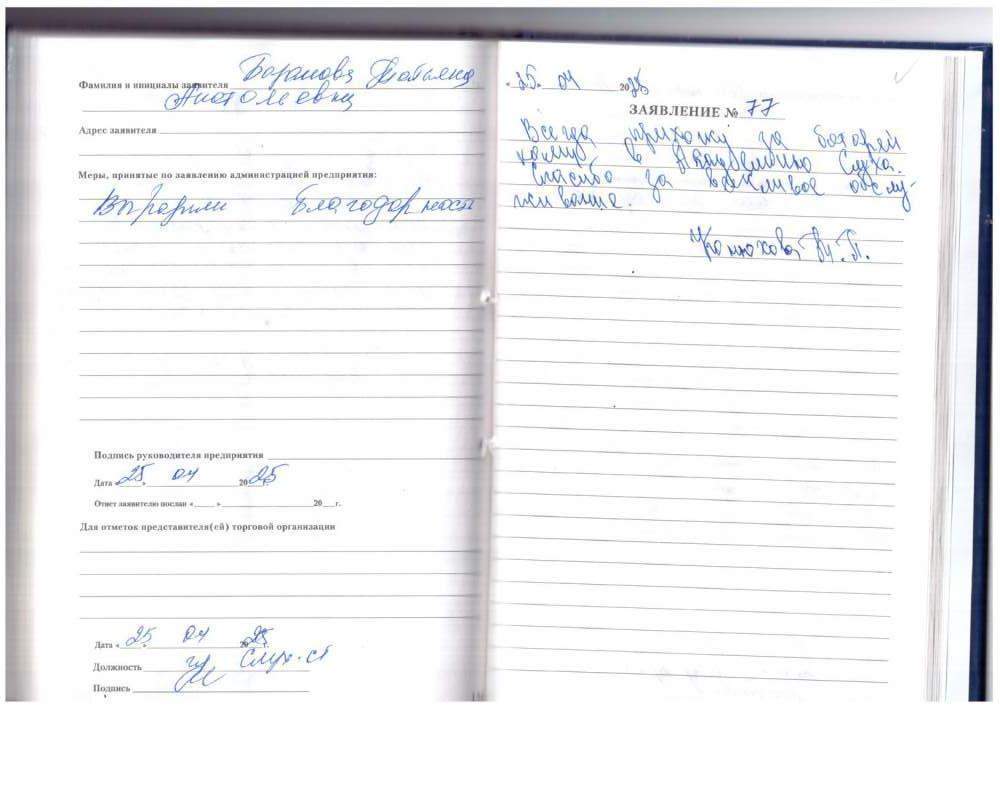 Фамилия и инициалы заявителя Баранова Татьяна
Анатольевна
Адрес заявителя
Меры, принятые по заявлению администрацией предприятия:
Выразили благодарность
Подпись руководителя предприятия
Дата «25» 04 2025
Ответ заявителю послан «____» 20__г.
Для отметок представителя(ей) торговой организации
Дата «25» 04 2025
Должность Слух-ст
Подпись
«25» 04 2025
ЗАЯВЛЕНИЕ № 77
Всегда прихожу за батарей
ками в Академию Слуха.
Спасибо за вежливое обслу-
живание.